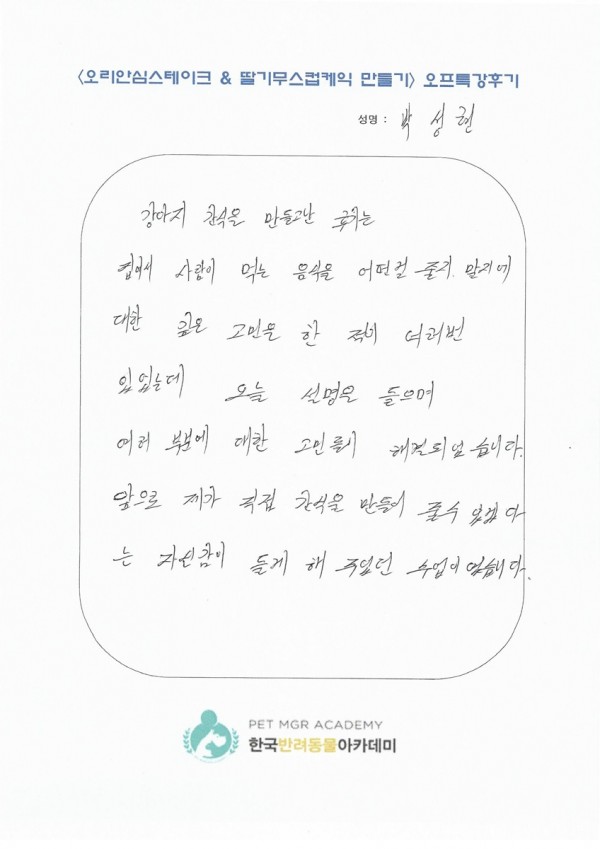 <오리안심스테이크 & 딸기무스컵케익 만들기> 오프특강후기
성명 : 박성현
강아지 간식을 만들고난 후기는
옆에서 사람이 먹는 음식을 어떤걸 줄지 말지에
대한 깊은 고민을 한 적이 여러번
있었는데 오늘 설명을 들으며
여러 부분에 대한 고민들이 해결되었습니다.
앞으로 제가 직접 간식을 만들어 줄수 있겠다
는 자신감이 들게 해 주었던 수업이었습니다.
PET MGR ACADEMY
한국반려동물아카데미